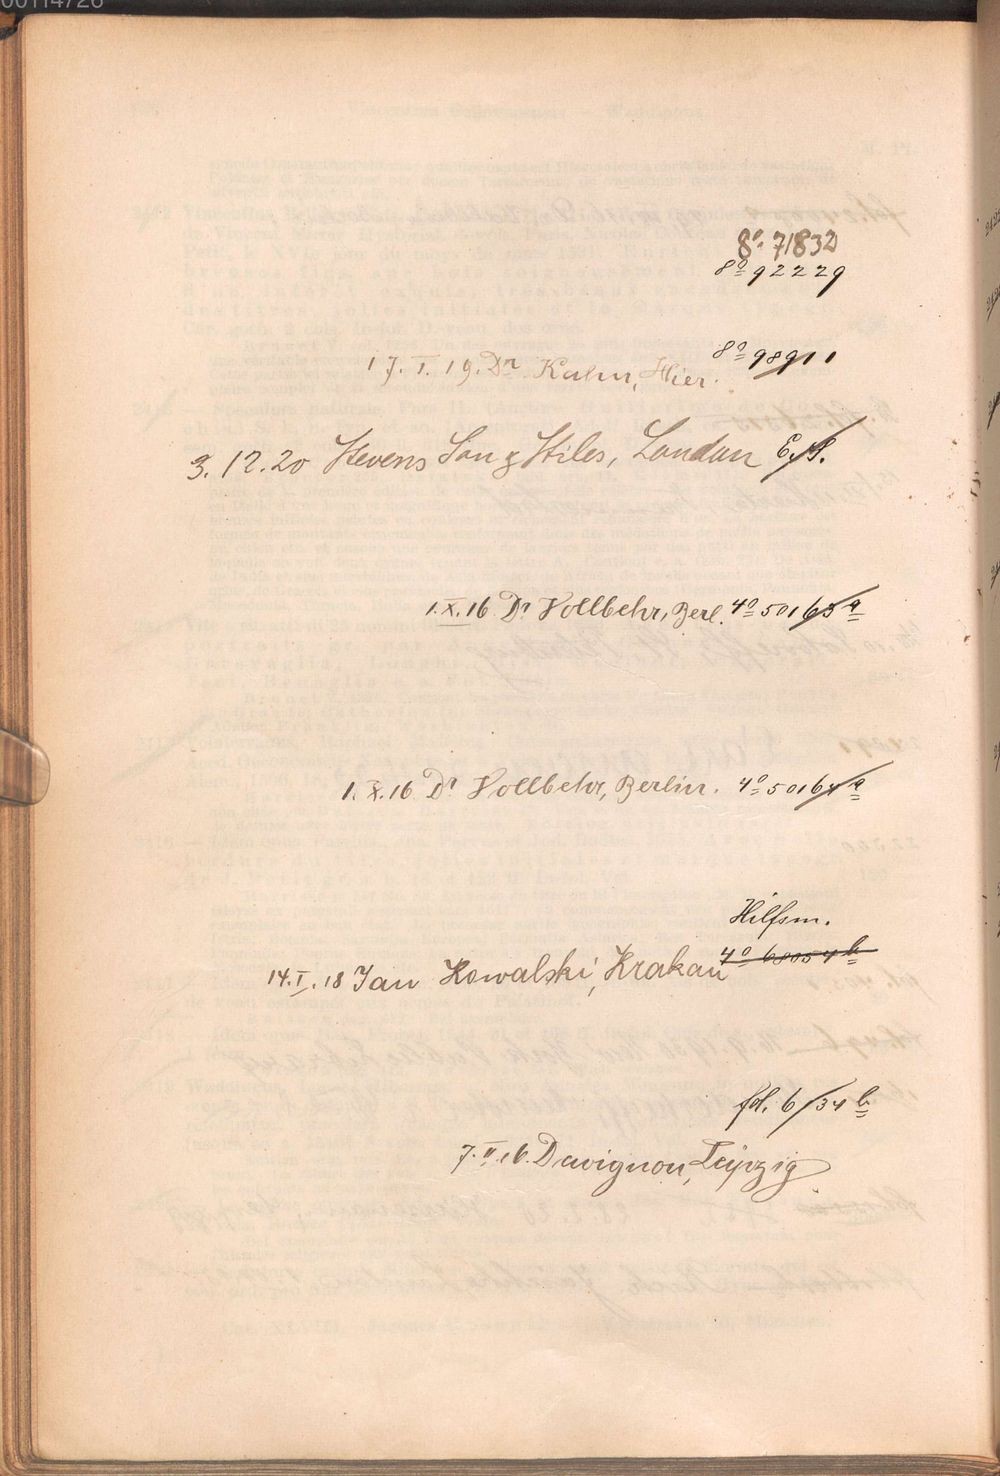 00114726
8º 71832
8º 92229
8º 98911
17. I. 19. Dr Kuhn, Hier.
3. 12. 20 Stevens Son & Stiles, London E/S.
1. X. 16 Dr Vollbehr, Berl. 4º 50165 a
1. X. 16 Dr Vollbehr, Berlin. 4º 50164 a
Hilfsm.
4º 68054 b
14. I. 18 Jan Kowalski, Krakau
fol. 6134 b
7. II. 16. Davignon, Leipzig